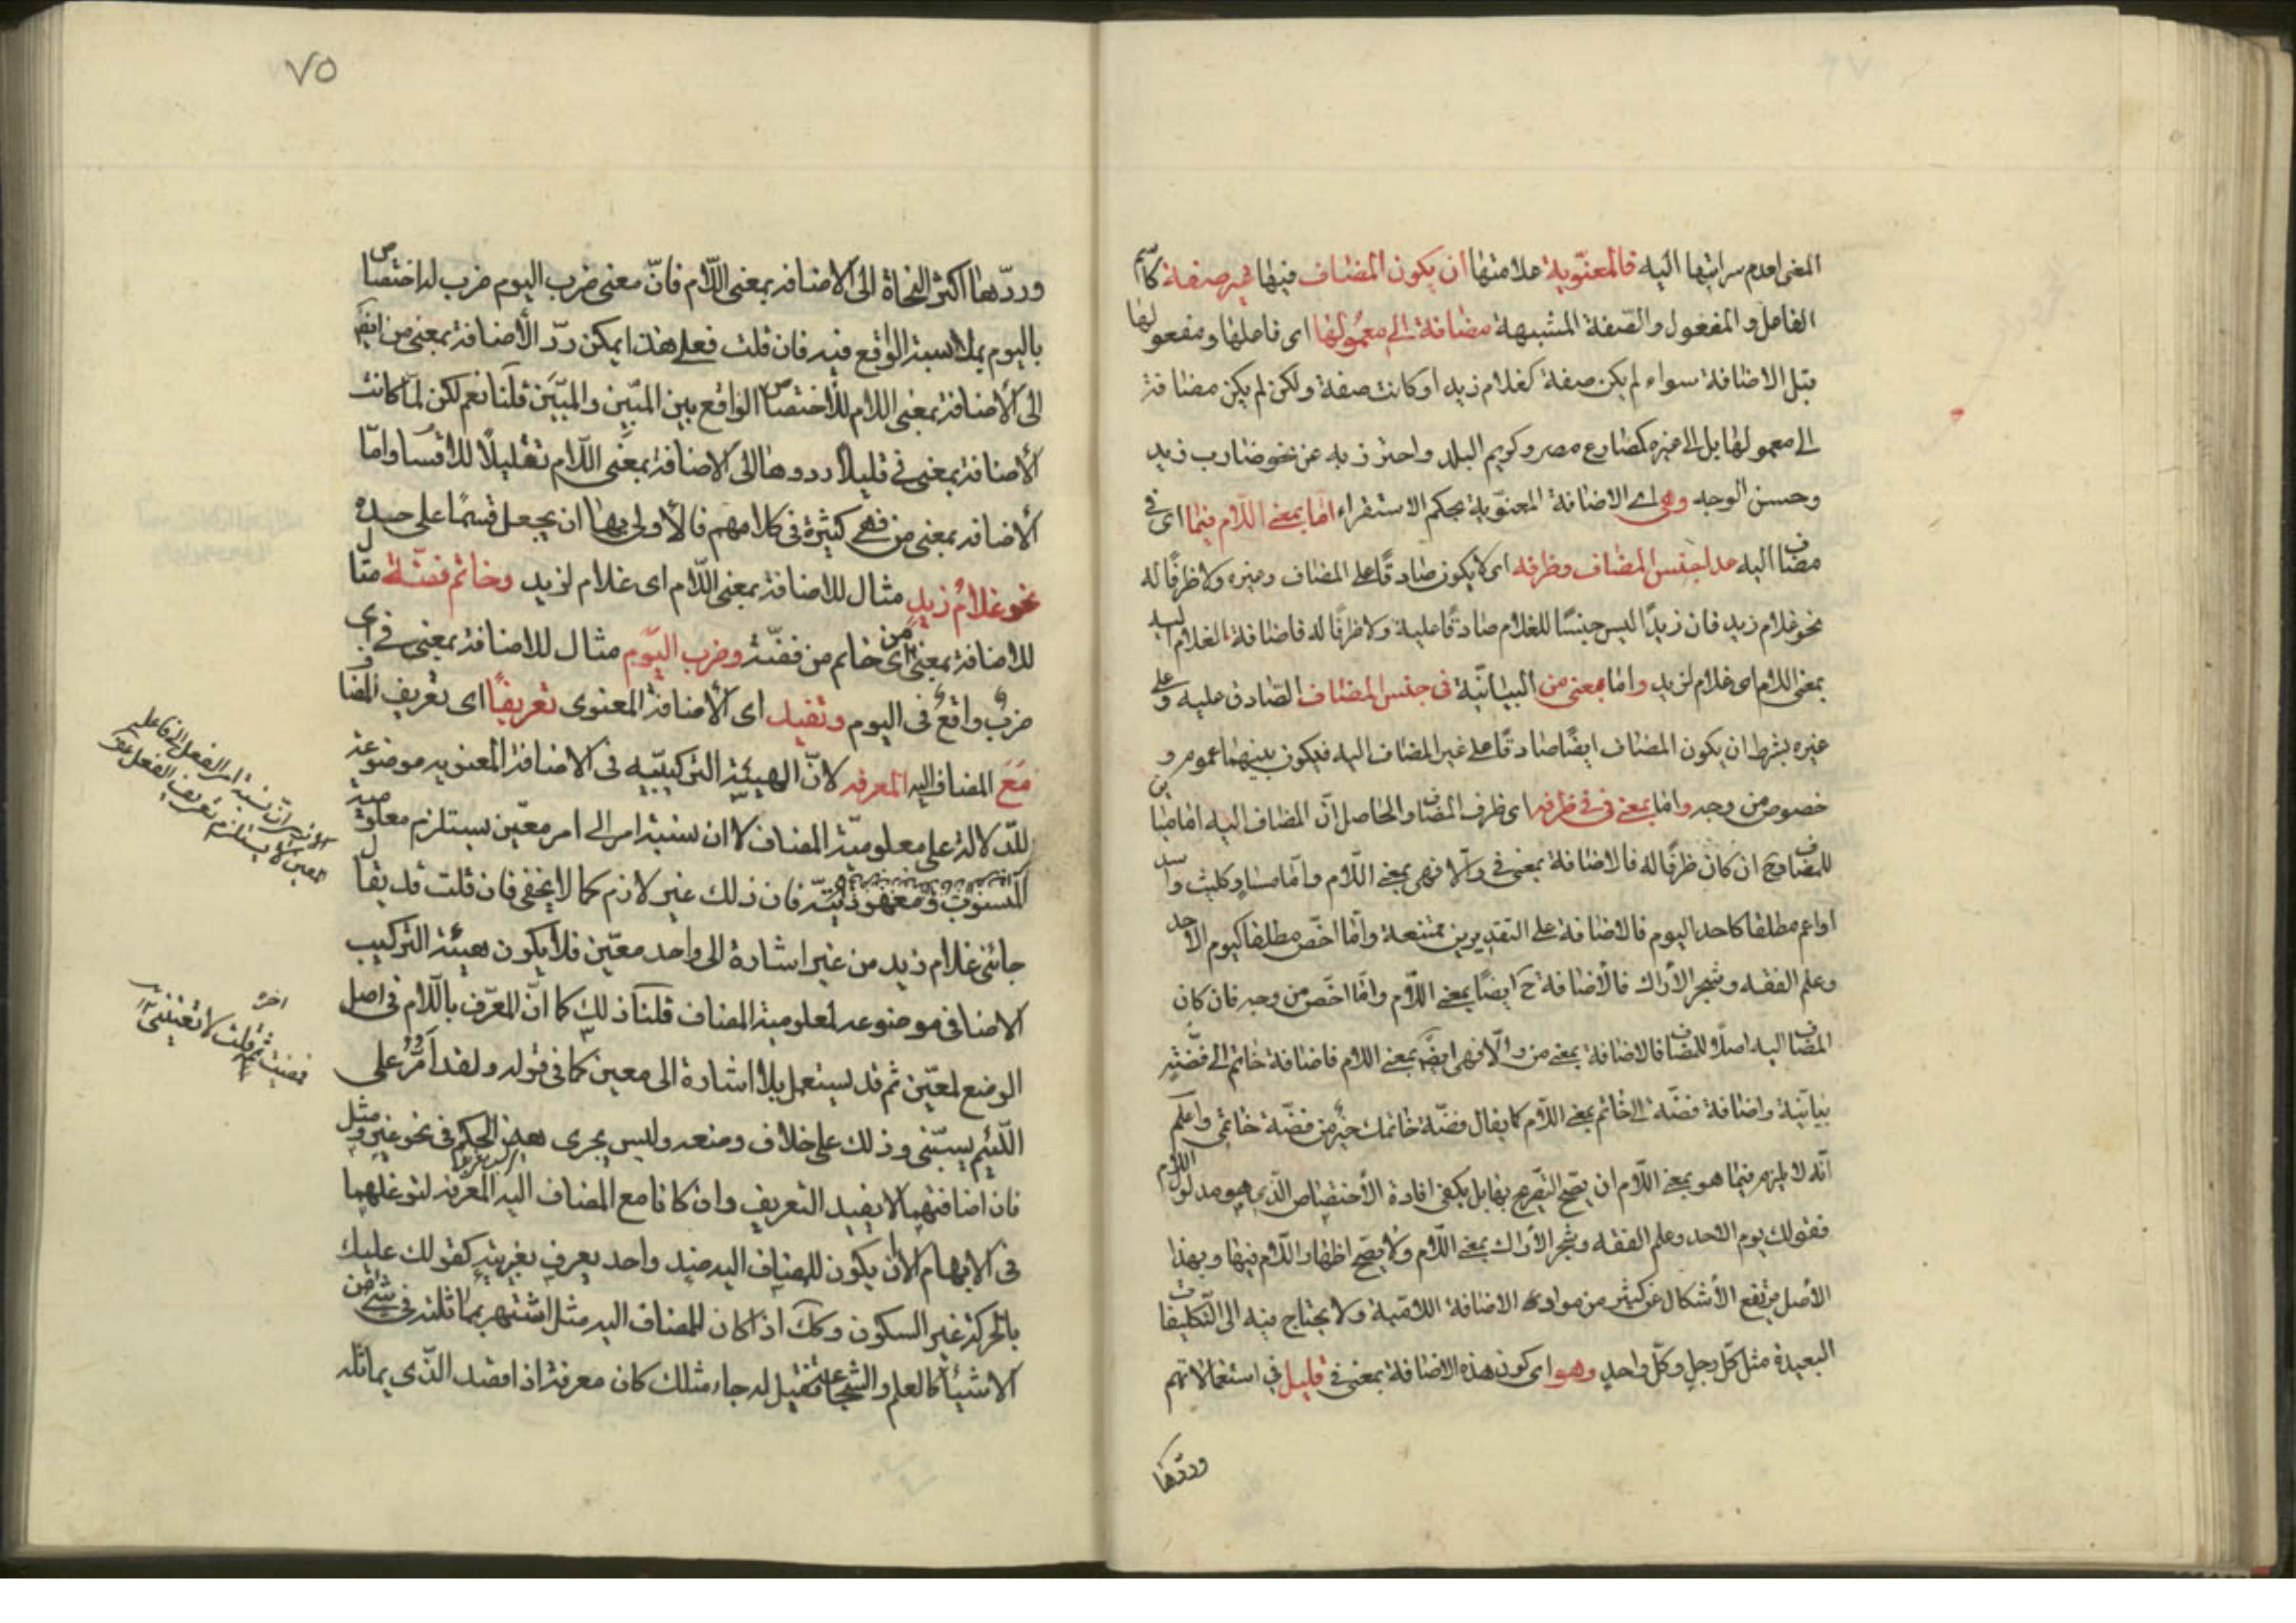 المعنى لعدم سرايتها اليه فالمعنوية علامتها ان يكون المضاف فيها غير صفة كاسم
الفاعل والمفعول والصفة المشبهة مضافة الى معمولها اى فاعلها ومفعولها
قبل الاضافة سواء لم يكن صفة كغلام زيد او كانت صفة ولكن لم يكن مضافة
الى معمولها بل الى غيره كمصارع مصر وكريم البلد واحترز به عن نحو ضارب زيد
وحسن الوجه وهى اى الاضافة المعنوية بحكم الاستقراء اما بمعنى اللام فيما اى فى
مضاف اليه عدا جنس المضاف وظرفه اى لا يكون صادقا على المضاف وغيره ولا ظرفا له
نحو غلام زيد فان زيدا ليس جنسا للغلام صادقا عليه ولا ظرفا له فاضافة الغلام اليه
بمعنى اللام اى غلام لزيد واما بمعنى من البيانية فى جنس المضاف الصادق عليه وعلى
غيره بشرط ان يكون المضاف ايضا صادقا على غير المضاف اليه فيكون بينهما عموم و
خصوص من وجه واما بمعنى فى فى ظرفه اى ظرف المضاف والحاصل ان المضاف اليه اما مباين
للمضاف وح ان كان ظرفا له فالاضافة بمعنى فى والا فهى بمعنى اللام واما مساو كليث واسد
او اعم مطلقا كاحد اليوم فالاضافة على التقديرين ممتنعة واما اخص مطلقا كيوم الاحد
وعلم الفقه وشجر الاراك فالاضافة ح ايضا بمعنى اللام واما اخص من وجه فان كان
المضاف اليه اصلا للمضاف فالاضافة بمعنى من والا فهى ايضا بمعنى اللام فاضافة خاتم الى فضة
بيانية واضافة فضة الى خاتم بمعنى اللام كما يقال فضة خاتمك خير من فضة خاتمى واعلم
انه لا يلزم فيما هو بمعنى اللام ان يصح التصريح بها بل يكفى افادة الاختصاص الذى هو مدلول اللام
فقولك يوم الاحد وعلم الفقه وشجر الاراك بمعنى اللام ولا يصح اظهار اللام فيها وبهذا
الاصل يرتفع الاشكال عن كثير من مواد الاضافة اللامية ولا يحتاج فيه الى التكليفات
البعيدة مثل كل رجل وكل واحد وهو اى كون هذه الاضافة بمعنى فى قليل فى استعمالاتهم
وردها
٧٥
وردها اكثر النحاة الى الاضافة بمعنى اللام فان معنى ضرب اليوم ضرب له اختصاص
باليوم بملابسة الوقع فيه فان قلت فعلى هذا يمكن رد الاضافة بمعنى من ايضا
الى الاضافة بمعنى اللام للاختصاص الواقع بين المبين والمبين قلنا نعم لكن لما كانت
الاضافة بمعنى فى قليلا ردوها الى الاضافة بمعنى اللام تقليلا للاقسام واما
الاضافة بمعنى من فهى كثيرة فى كلامهم فالاولى بها ان يجعل قسما على حدة
نحو غلام زيد مثال للاضافة بمعنى اللام اى غلام لزيد وخاتم فضة مثال
للاضافة بمعنى من اى خاتم من فضة وضرب اليوم مثال للاضافة بمعنى فى اى
ضرب واقع فى اليوم وتفيد اى الاضافة المعنوى تعريفا اى تعريف المضاف
مع المضاف اليه المعرفة لان الهيئة التركيبية فى الاضافة المعنوية موضوعة
للدلالة على معلومية المضاف لا ان نسبة امر الى امر معين يستلزم معلومية
المنسوب ومعهوديته فان ذلك غير لازم كما لا يخفى فان قلت قد يقال
جائنى غلام زيد من غير اشارة الى واحد معين فلا يكون هيئة التركيب
الاضافى موضوعة لمعلومية المضاف قلنا ذلك كما ان المعرف باللام فى اصل
الوضع لمعين ثم قد يستعمل بلا اشارة الى معين كما فى قوله ولقد امر على
اللئيم يسبنى وذلك على خلاف وضعه وليس يجرى هذا الحكم فى نحو غير ومثل
فان اضافتهما لا يفيد التعريف وان كانا مع المضاف اليه المعرفة لتوغلهما
فى الابهام الا ان يكون للمضاف اليه ضد واحد يعرف بغيريته كقولك عليك
بالحركة غير السكون وكك اذا كان للمضاف اليه مثل اشتهر بمماثلته فى شئ من
الاشياء كالعلم والشجاعة فقيل له جاء مثلك كان معرفة اذا قصد الذى يماثله
الا ترى ان نسبة امر الفعل الى فاعله
المعين لا يستلزم تعريف الفعل
اخره
فمضيت ثمت قلت لا يعنينى